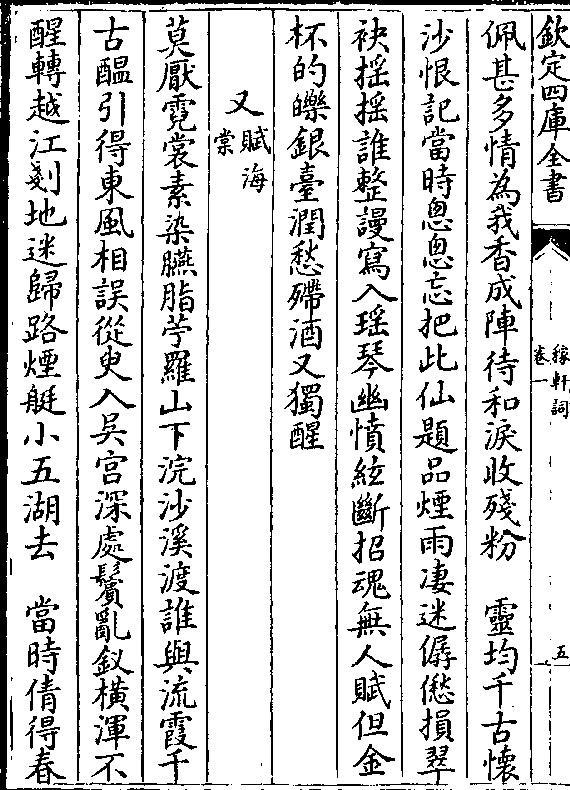 欽定四庫全書
稼軒詞
卷一
五
佩甚多情為我香成陣待和淚收殘粉　靈均千古懷
沙恨記當時悤悤忘把此仙題品煙雨凄迷僝僽損翠
袂揺揺誰整謾寫入瑶琴幽憤絃斷招魂無人賦但金
杯的皪銀臺潤愁殢酒又獨醒
又賦海棠
莫厭霓裳素染臙脂苧羅山下浣沙溪渡誰與流霞千
古醖引得東風相誤從臾入吳宫深處鬢亂釵横渾不
醒轉越江剗地迷歸路煙艇小五湖去　當時倩得春